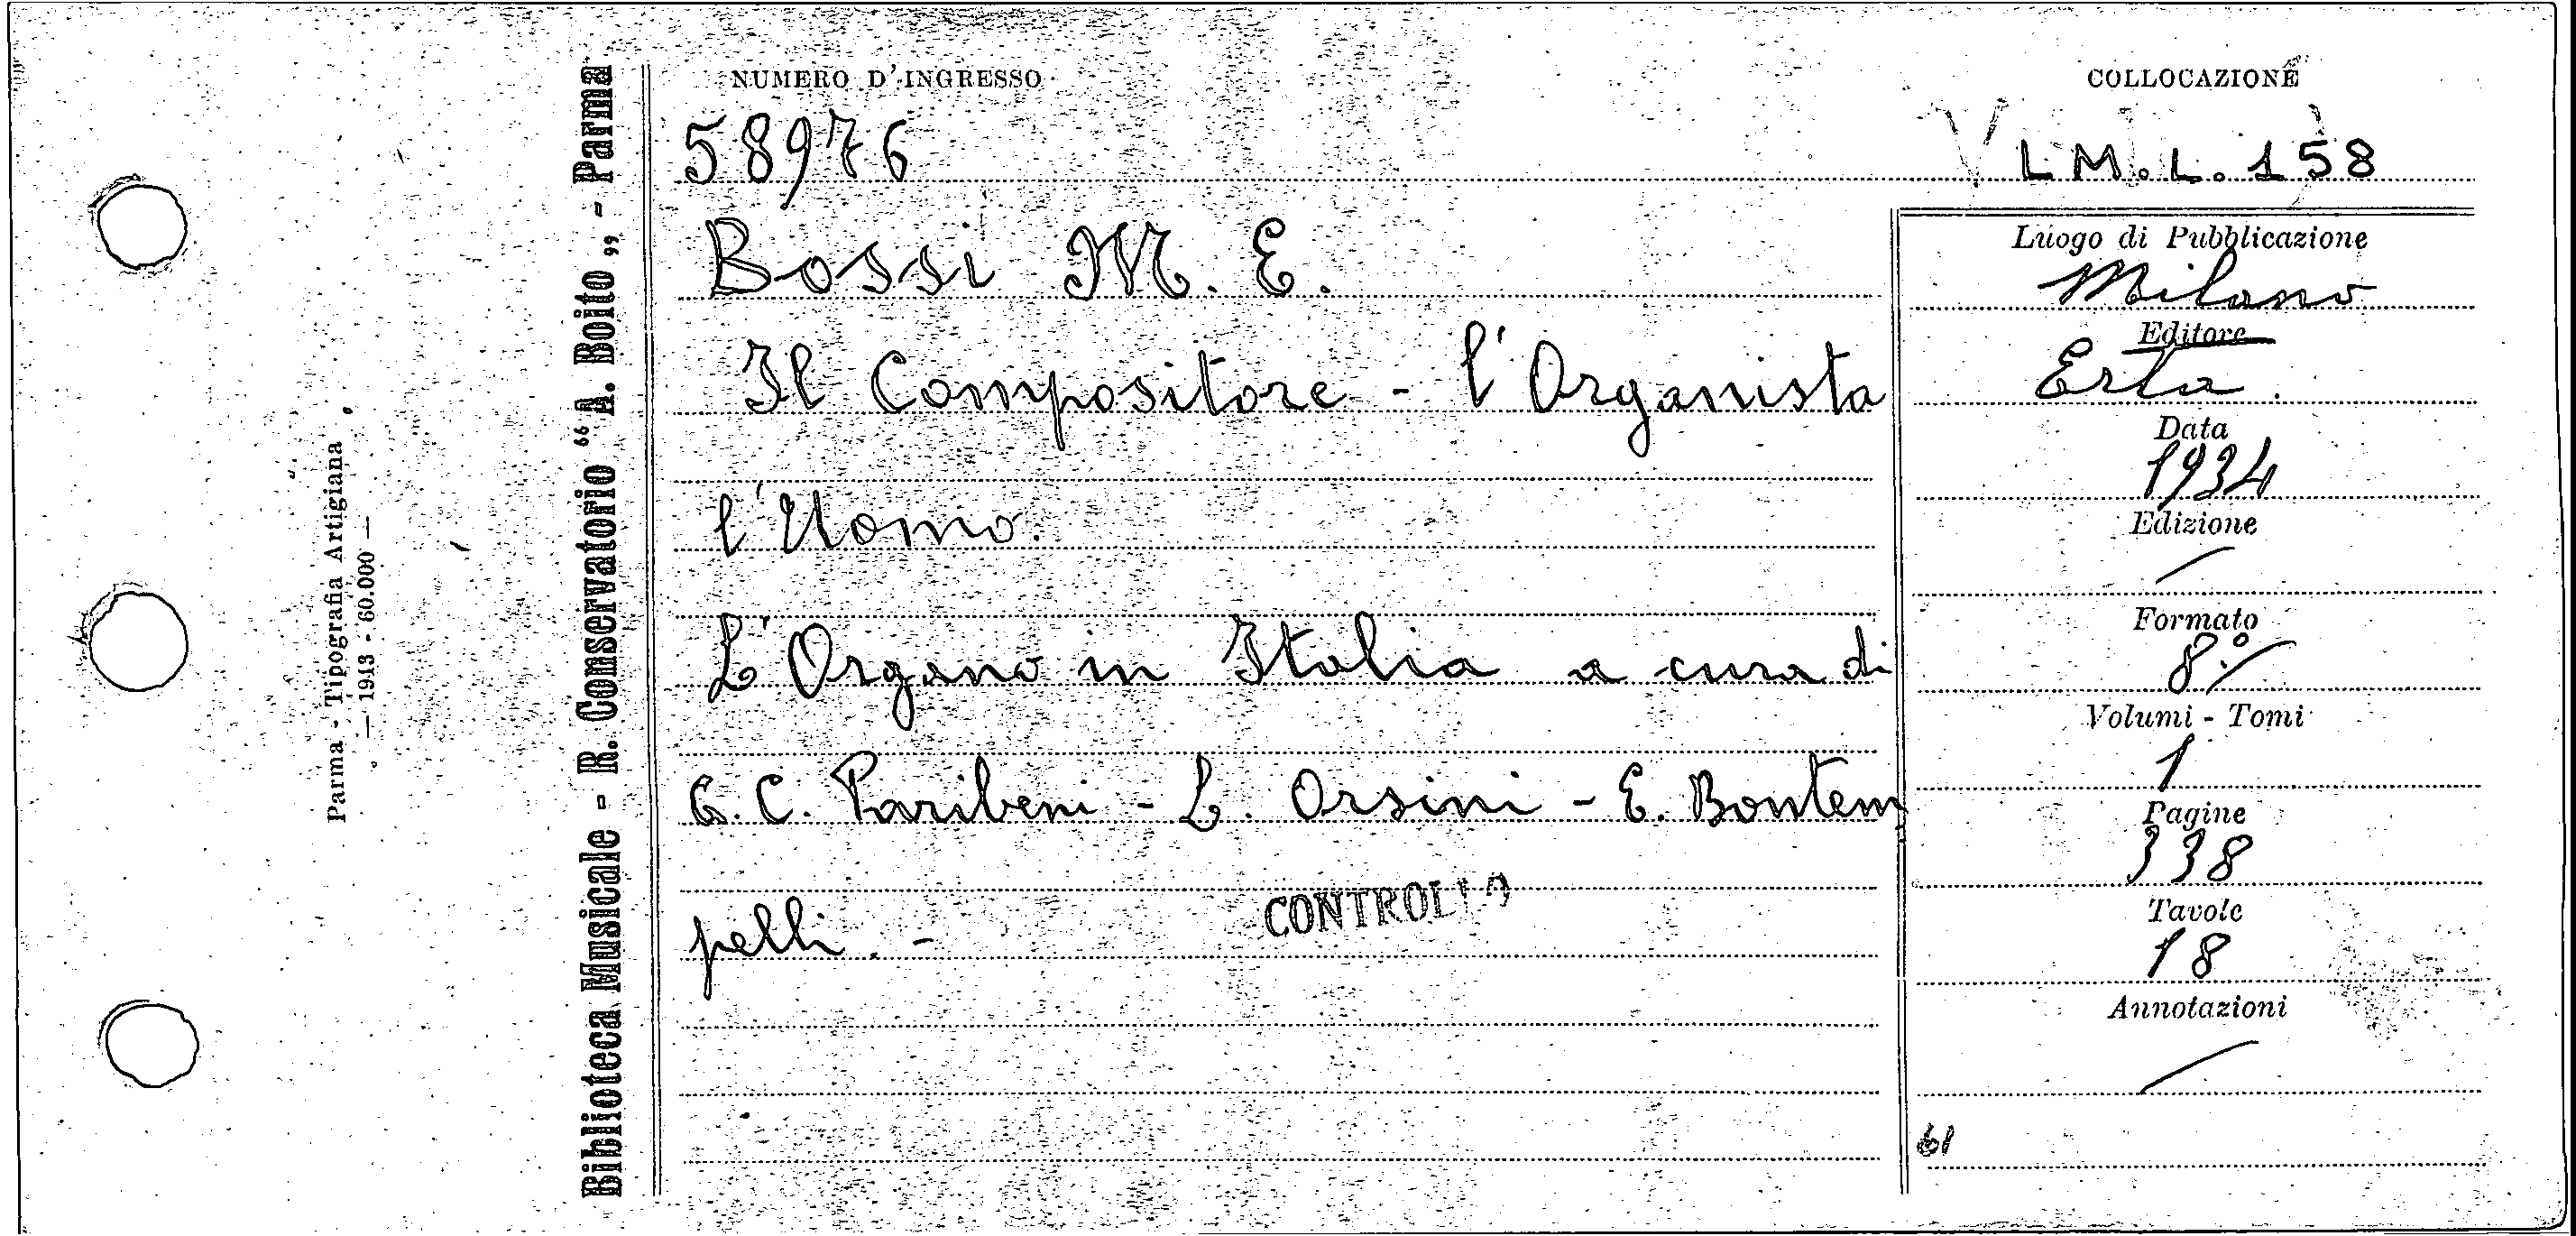 NUMERO D'INGRESSO
58976
COLLOCAZIONE
LM.L.158
Bossi M. E.
Il Compositore - l'Organista
l'Uomo.
L'Organo in Italia a cura di
G. C. Paribeni - L. Orsini - E. Bontem
pelli. -
CONTROL
Luogo di Pubblicazione
Milano
Editore
Erta.
Data
1934
Edizione
Formato
8°
Volumi - Tomi
1
Pagine
338
Tavole
18
Annotazioni
61
Biblioteca Musicale - R. Conservatorio "A. Boito„ - Parma
Parma - Tipografia Artigiana
— 1943 - 60.000 —